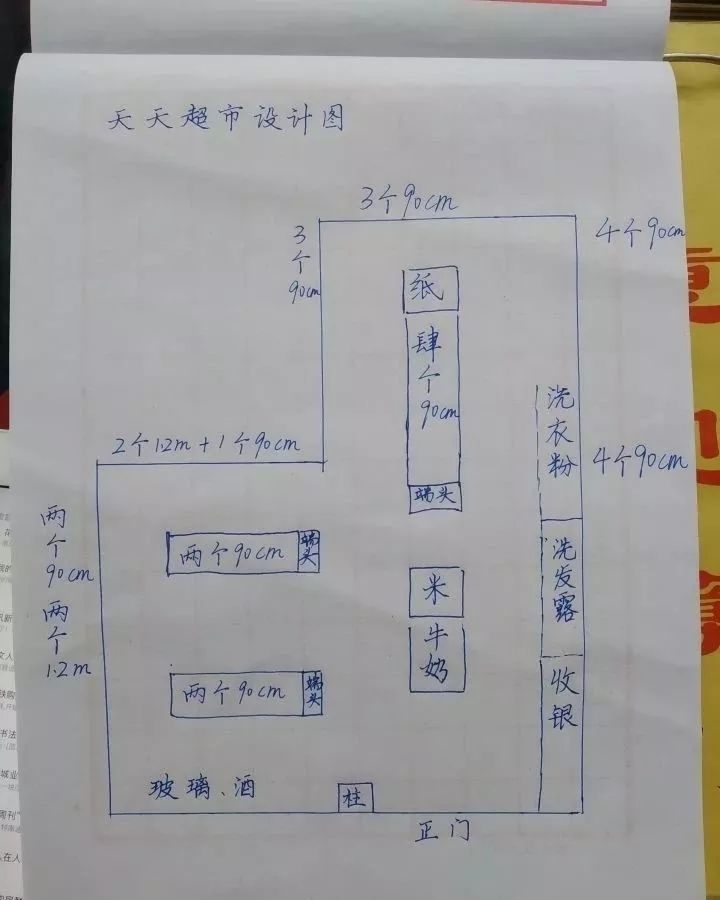 天天超市设计图
3个90cm
3个90cm
4个90cm
纸
肆个90cm
洗衣粉
2个1.2m+1个90cm
4个90cm
端头
两个90cm
两个90cm
端头
洗发露
米
两个1.2m
牛奶
两个90cm
端头
收银
玻璃、酒
柱
正门